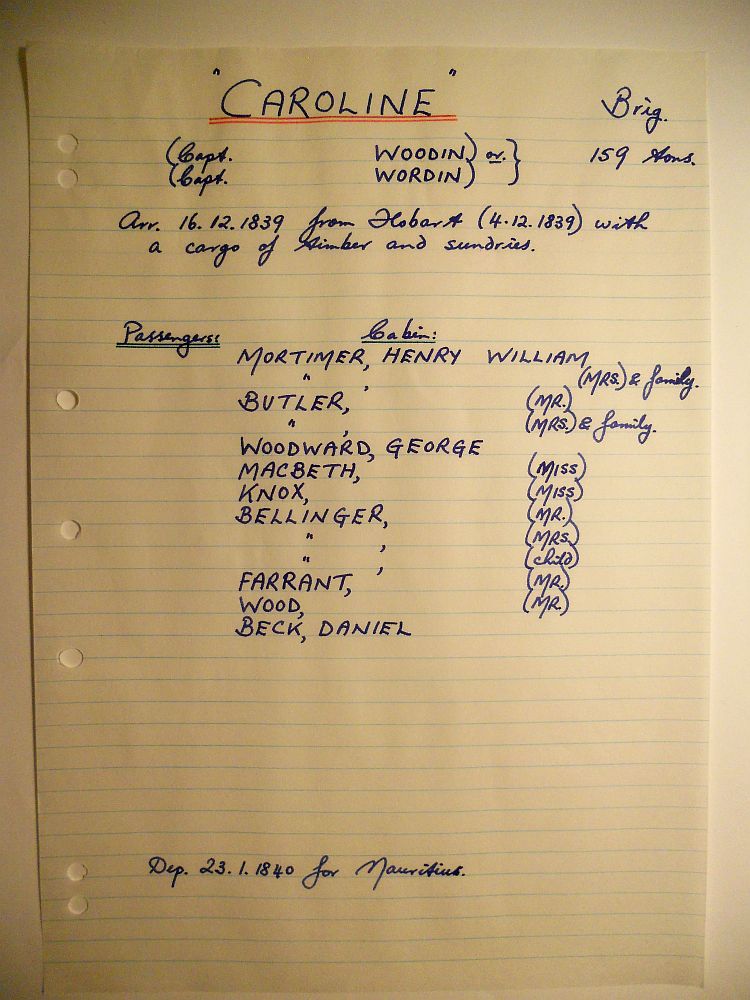 "CAROLINE" Brig.
(Capt. WOODIN) or. } 159 tons.
(Capt. WORDIN)
Arr. 16.12.1839 from Hobart (4.12.1839) with
a cargo of timber and sundries.
Passengers: Cabin:
MORTIMER, HENRY WILLIAM
" , (MRS.) & family.
BUTLER, (MR.)
" , (MRS.) & family.
WOODWARD, GEORGE
MACBETH, (MISS)
KNOX, (MISS)
BELLINGER, (MR.)
" , (MRS.)
" , (child)
FARRANT, (MR.)
WOOD, (MR.)
BECK, DANIEL
Dep. 23.1.1840 for Mauritius.